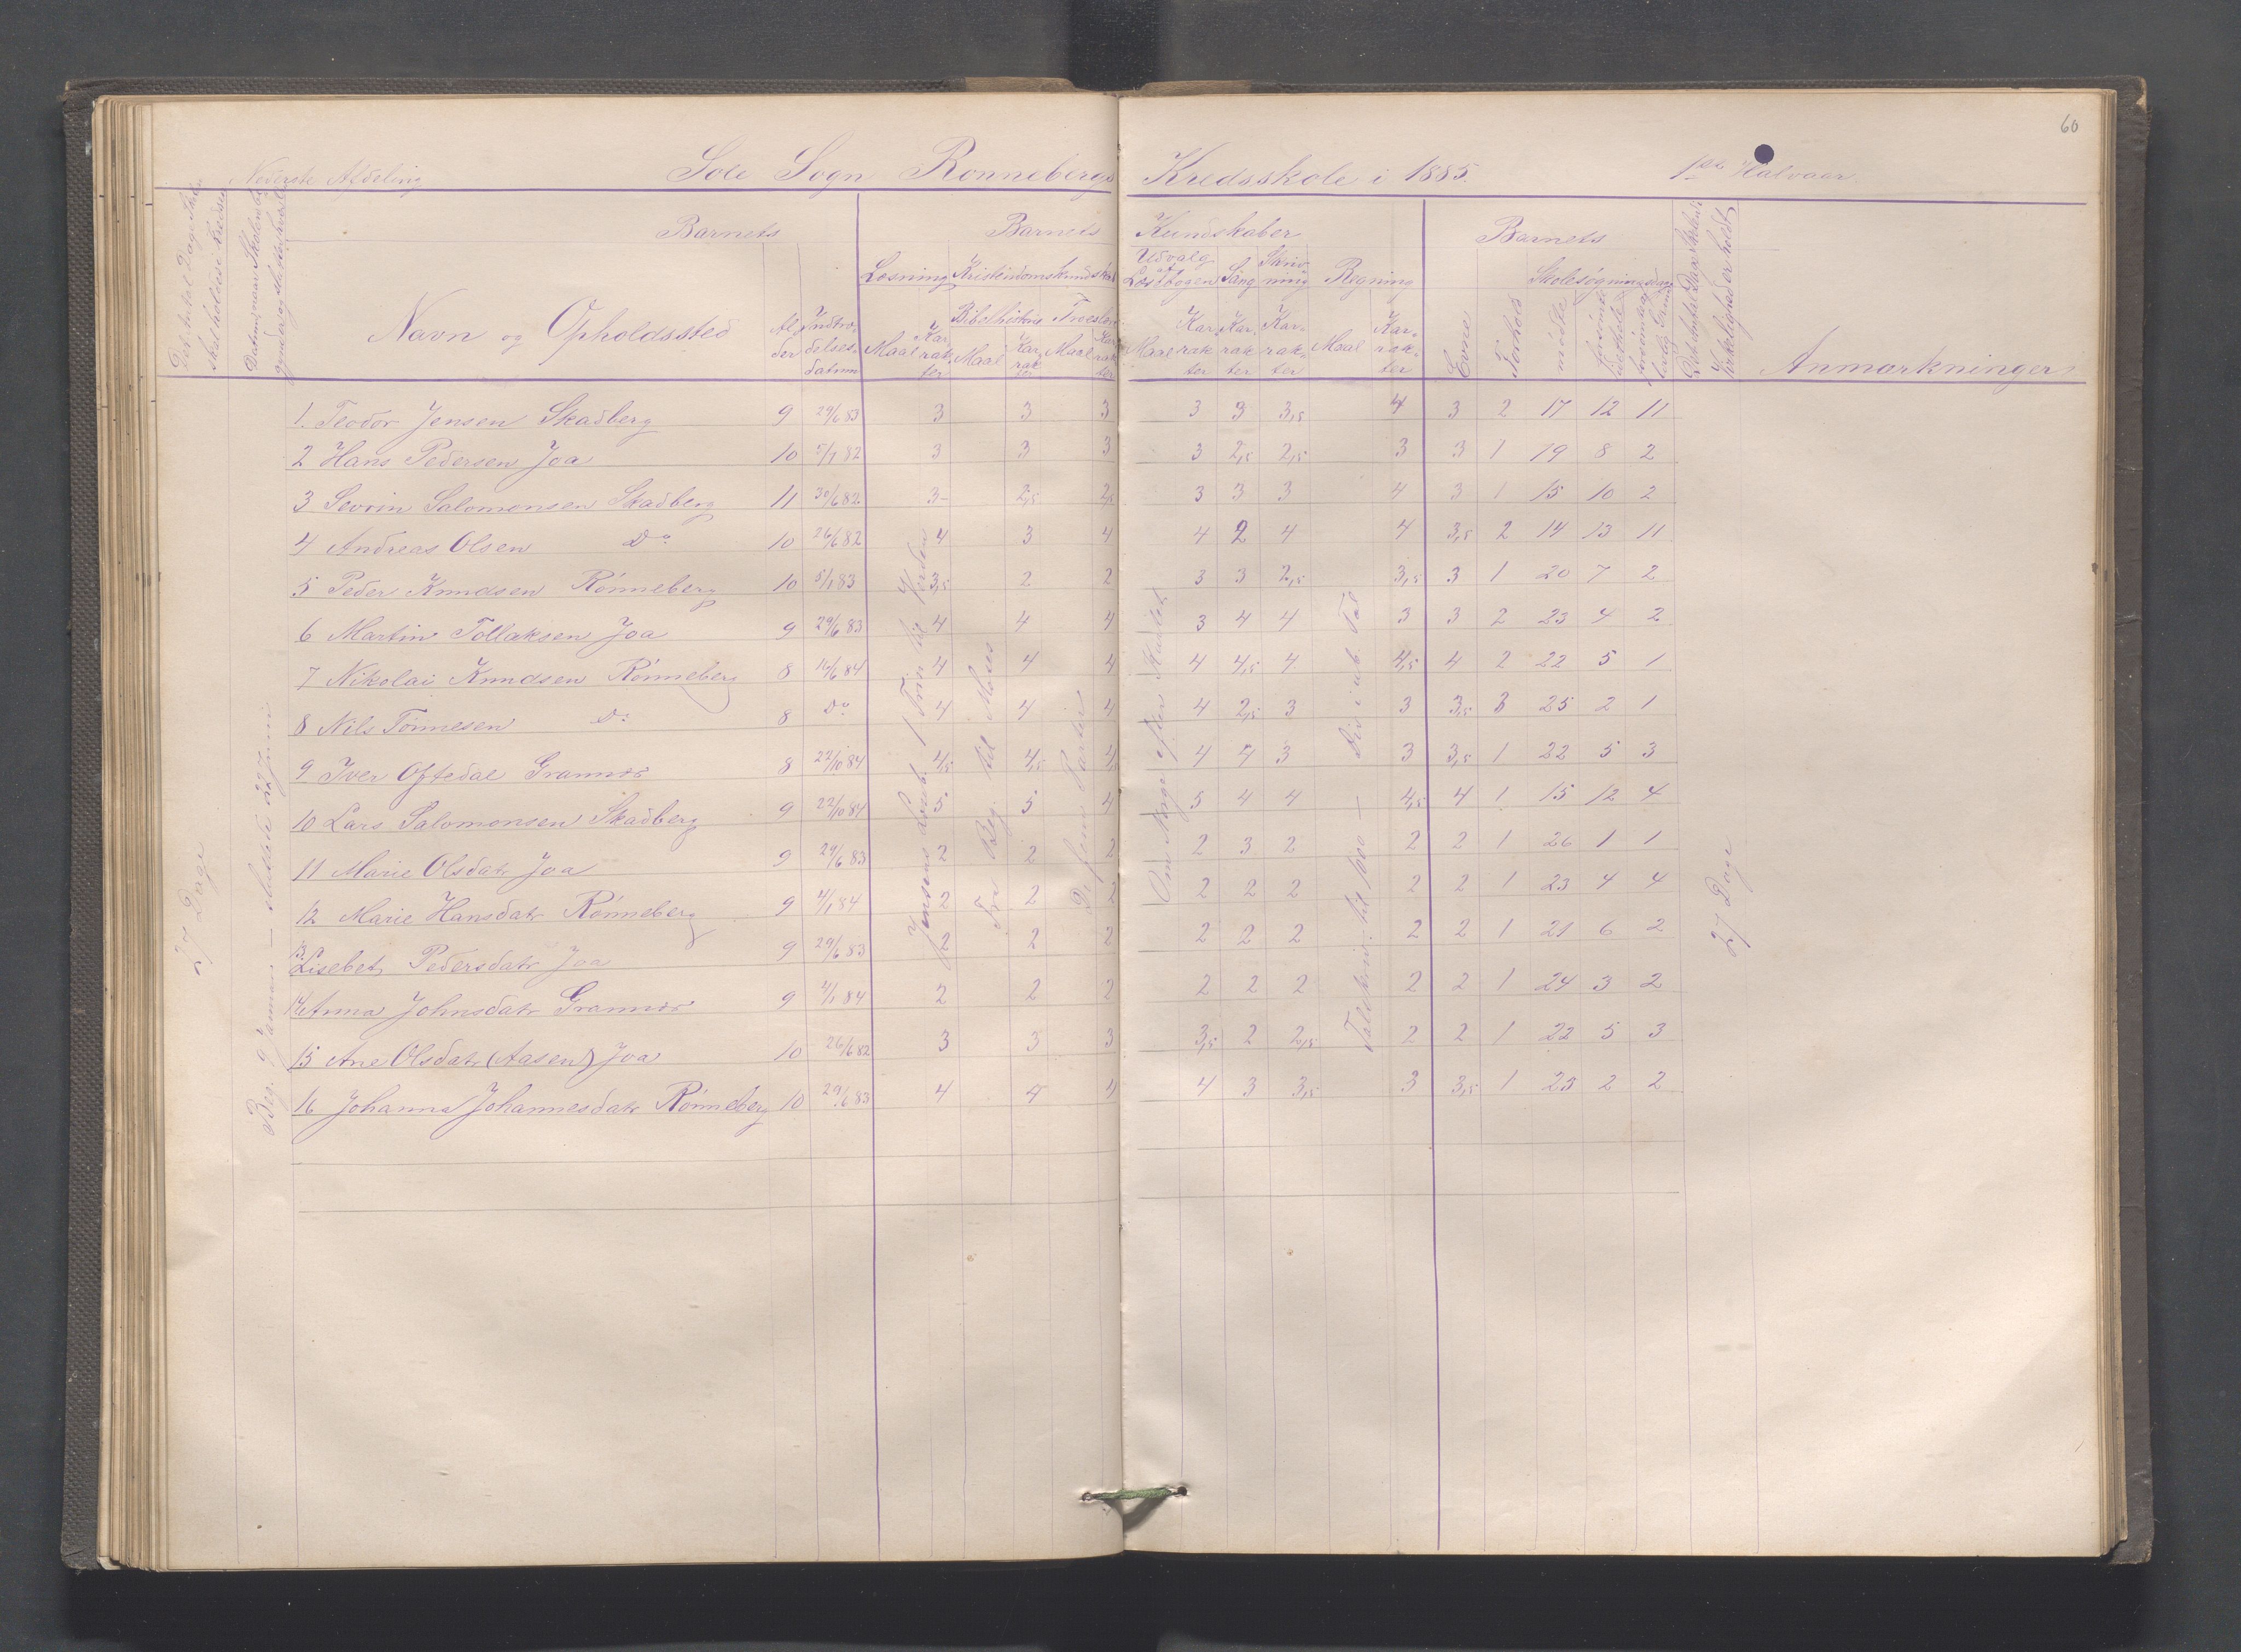 60
Nederste Afdeling
Sole Sogn Ronnebergs Kredsskole i 1885. 1ste Halvaar.
Det Antal Dage Skolen skal holdes i Kredsen
Datum, naar Skolen begynder og slutter hvert
Barnets
Navn og Opholdssted
Alder
Indtrædelsesdatum
Barnets Kundskaber
Læsning
Kristendomskundskab
Bibelhistorie
Troeslære
Udvalg af Læsebogen
Sang
Skrivning
Regning
Maal Karakter Maal Karakter Maal Karakter Maal Karakter Karakter Karakter Maal Karakter
Barnets
Evne
Forhold
Skolesøgningsdage
mødte
forsømte
Det Antal Dage Skolen i Virkelighed er holdt
Anmærkninger
1. Teodor Jensen Skadberg 9 29/6 83 3 3 3 3 3 3,5 4 3 2 17 12 11
2 Hans Pedersen Joa 10 5/1 82 3 3 3 3 2,5 2,5 3 3 1 19 8 2
3 Sevrin Salomonsen Skadberg 11 30/6 82 3 2,5 2,5 3 3 3 4 3 1 15 10 2
4 Andreas Olsen Do 10 26/6 82 4 3 4 4 2 4 4 3,5 2 14 13 11
5 Peder Knudsen Rönneberg 10 5/1 83 3,5 2 2 3 3 2,5 3,5 3 1 20 7 2
6 Martin Tollaksen Joa 9 29/6 83 4 4 4 3 4 4 3 3 2 23 4 2
7 Nikolai Knudsen Rönneberg 8 16/6 84 4 4 4 4 4,5 4 4,5 4 2 22 5 1
8 Nils Tönnesen Do 8 Do 4 4 4 4 2,5 3 3 3,5 3 25 2 1
9 Iver Oftedal Grannes 8 22/10 84 4,5 4,5 4,5 4 4 3 3 3,5 1 22 5 3
10 Lars Salomonsen Skadberg 9 22/10 84 5 5 4 5 4 4 4,5 4 1 15 12 4
11 Marie Olsdatr Joa 9 29/6 83 2 2 2 2 3 2 2 2 1 26 1 1
12 Marie Hansdatr Rönneberg 9 4/1 84 2 2 2 2 2 2 2 2 1 23 4 4
13 Lisebet Pedersdatr Joa 9 29/6 83 2 2 2 2 2 2 2 2 1 21 6 2
14 Anna Johnsdatr Grannes 9 4/1 84 2 2 2 2 2 2 2 2 1 24 3 2
15 Ane Olsdatr (Aasen) Joa 10 26/6 82 3 3 3 3,5 2 2,5 2 2 1 22 5 3
16 Johanna Johannesdatr Rönneberg 10 29/6 83 4 4 4 4 3 3,5 3 3,5 1 23 2 2
27 Dage
Beg. 9 Januar – sluttede 27 Juni
Jensens Læseb. 1 Trin til Verden
Fra Beg. til Moses
De fem Parter
Om Norge efter Kartet
Talskrivn. til 1000 – Div i ub. Tal
27 Dage